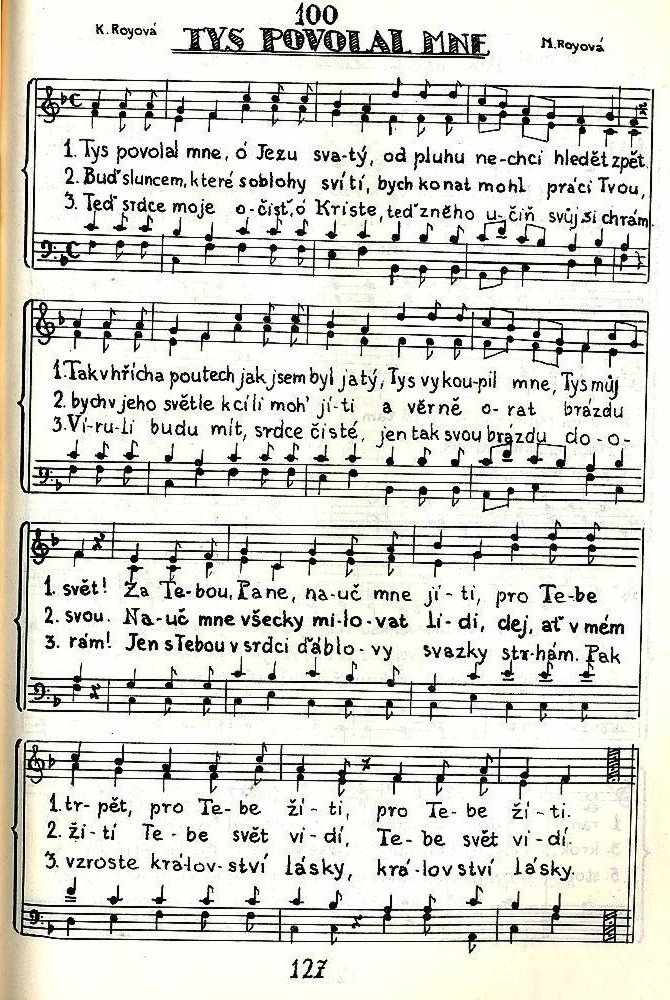 100
K. Royová
TYS POVOLAL MNE
M. Royová
1. Tys povolal mne, ó Jezu sva-tý, od pluhu ne-chci hledět zpět.
2. Buď sluncem, které s oblohy svítí, bych konat mohl práci Tvou,
3. Teď srdce moje o-čisť, ó Kriste, teď z něho u-čiň svůj si chrám.
1. Tak v hřícha poutech jak jsem byl jatý, Tys vykou-pil mne, Tys můj
2. bych v jeho světle k cíli moh' jí-ti a věrně o-rat brázdu
3. Ví-ru-li budu mít, srdce čisté, jen tak svou brázdu do-o-
1. svět! Za Te-bou, Pane, na-uč mne jí-ti, pro Te-be
2. svou. Na-uč mne všecky mi-lo-vat li-di, dej, ať v mém
3. rám! Jen s Tebou v srdci ďáblo-vy svazky str-hám. Pak
1. tr-pět, pro Te-be ží-ti, pro Te-be ží-ti.
2. ži-tí Te-be svět vi-dí, Te-be svět vi-dí.
3. vzroste králov-ství lásky, krá-lovství lásky.
127